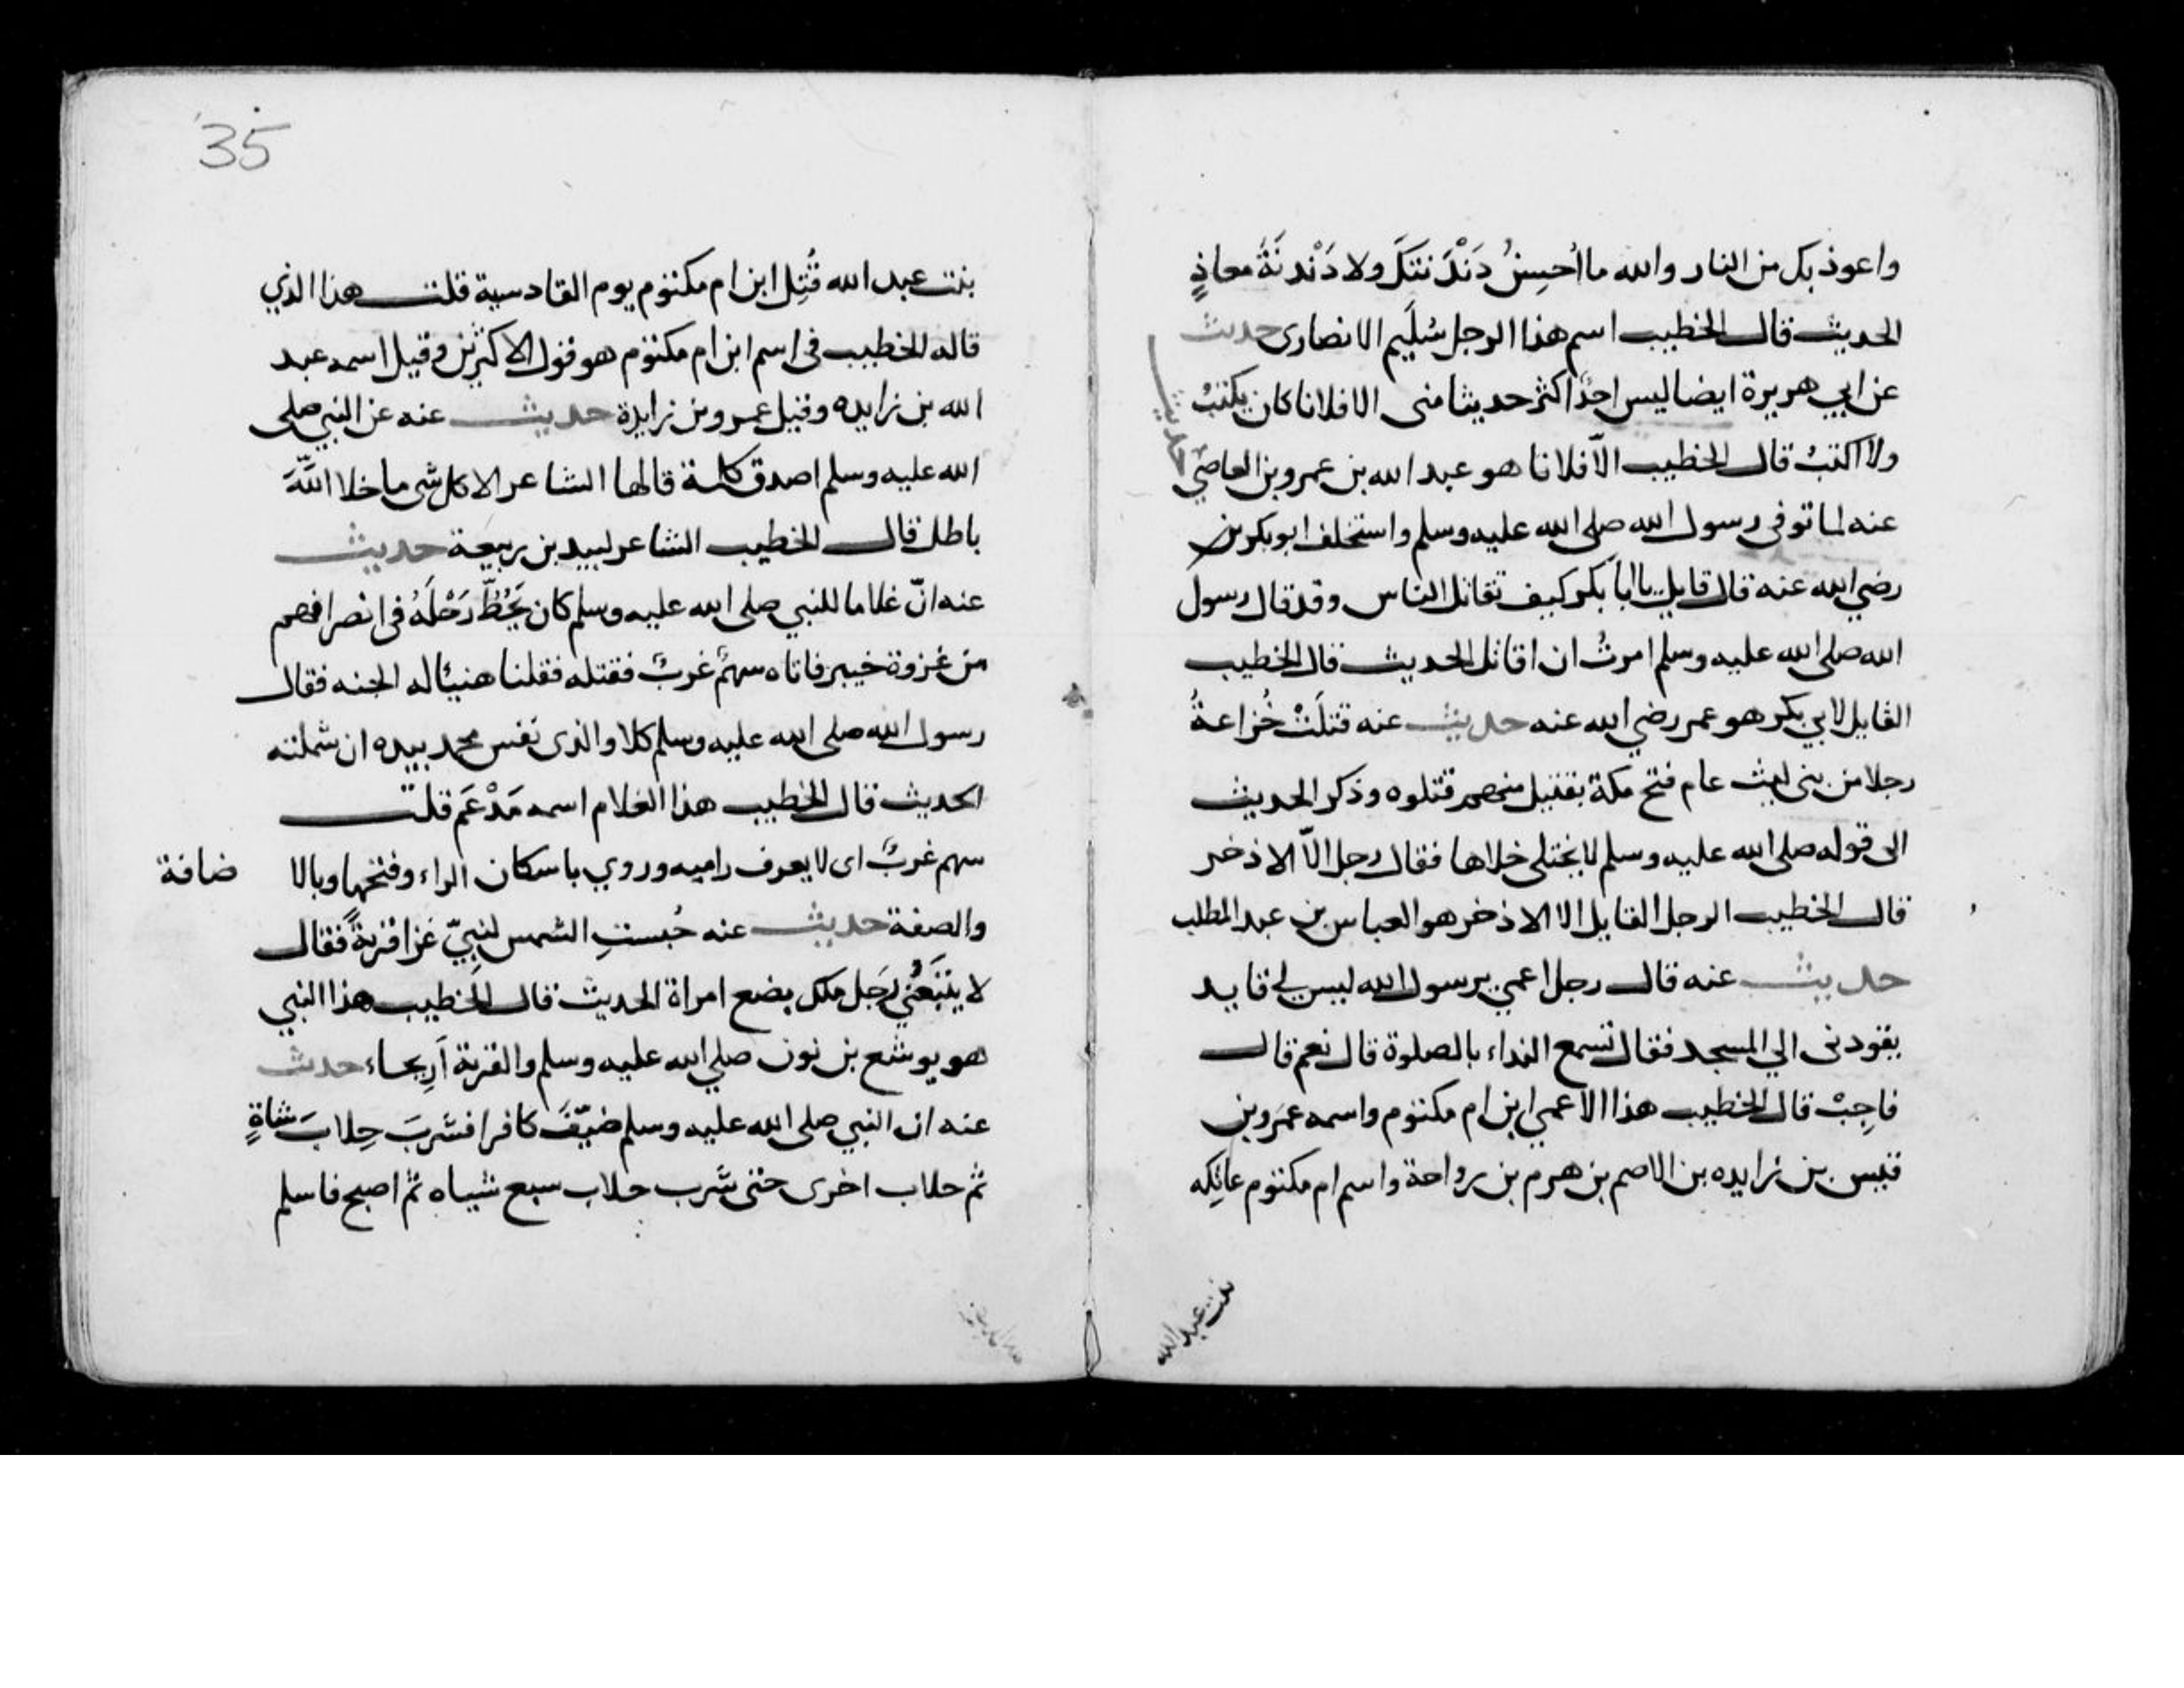 واعوذ بك من النار والله ما اُحسِنُ دَنْدَنتكَ ولا دَنْدنَةُ معاذٍ
الحديث قال الخطيب اسم هذا الرجل سُلَيم الانصاري حديث
عن ابي هريرة ايضا ليس احدٌ اكثر حديثا مني الا فلانا كان يكتبُ
ولا اكتبُ قال الخطيب الّا فلانا هو عبد الله بن عمرو بن العاصي
حديث
عنه لما توفي رسول الله صلى الله عليه وسلم واستخلف ابو بكر بن
رضي الله عنه قال قايل يا ابا بكر كيف تقاتل الناس وقد قال رسول
الله صلى الله عليه وسلم امرتُ ان اقاتل الحديث قال الخطيب
القايل لابي بكر هو عمر رضي الله عنه حديث عنه قتلَتْ خُزاعةُ
رجلا من بني ليث عام فتح مكة بقتيل منهم قتلوه وذكر الحديث
الى قوله صلى الله عليه وسلم لا يختلى خلاها فقال رجل الّا الاذخر
قال الخطيب الرجل القايل الا الاذخر هو العباس بن عبد المطلب
حديث عنه قال رجل اعمي يرسول الله ليس لي قايد
يقودني الي المسجد فقال تسمع النداء بالصلوة قال نعم قال
فاجِبْ قال الخطيب هذا الاعمي ابن ام مكتوم واسمه عمرو بن
قيس بن زايده بن الاصم بن هرم بن رواحة واسم ام مكتوم عاتِكه
بنت عبد الله
35
بنت عبد الله قُتِل ابن ام مكتوم يوم القادسية قلت هذا الذي
قاله الخطيب في اسم ابن ام مكتوم هو قول الاكثرين وقيل اسمه عبد
الله بن زايده وقيل عمرو بن زايدة حديث عنه عن النبي صلى
الله عليه وسلم اصدق كلمة قالها الشاعر الا كل شي ما خلا اللّهَ
باطل قال الخطيب الشاعر لبيد بن ربيعة حديث
عنه انّ غلاما للنبي صلى الله عليه وسلم كان يَحُطّ رَحْلَهُ في انصرافهم
من غزوة خيبر فاتاه سهمٌ غربٌ فقتله فقلنا هنيئا له الجنه فقال
رسول الله صلى الله عليه وسلم كلا والذي نفس محمد بيده ان شملته
الحديث قال الخطيب هذا الغلام اسمه مَدْعَم قلت
سهم غربٌ اى لا يعرف راميه وروي باسكان الراء وفتحها وبالا ضافة
والصفة حديث عنه حُبستِ الشمس لنبيّ غزا قريةً فقال
لا يتبَعُني رَجل ملك بضع امراة الحديث قال الخطيب هذا النبي
هو يوشع بن نون صلي الله عليه وسلم والقرية اَرِيحاء حديث
عنه ان النبي صلى الله عليه وسلم ضيّفَ كافرا فشربَ حِلابَ شاةٍ
ثم حلاب اخرى حتى شرب حلاب سبع شياه ثم اصبح فاسلم